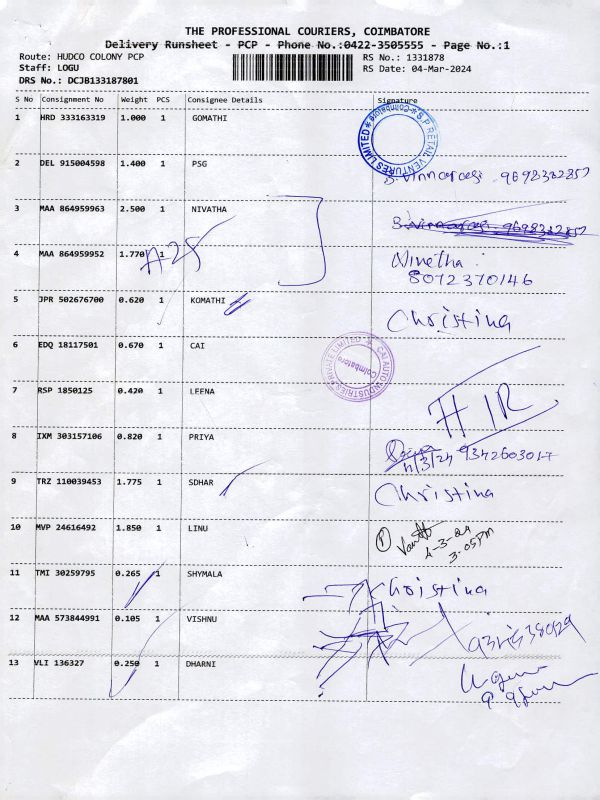 THE PROFESSIONAL COURIERS, COIMBATORE
Delivery Runsheet - PCP - Phone No.:0422-3505555 - Page No.:1
Route: HUDCO COLONY PCP RS No.: 1331878
Staff: LOGU RS Date: 04-Mar-2024
DRS No.: DCJB133187801
S No Consignment No Weight PCS Consignee Details Signature
1 HRD 333163319 1.000 1 GOMATHI
S.P RETAIL VENTURES LIMITED * Coimbatore *
2 DEL 915004598 1.400 1 PSG
9698332857
3 MAA 864959963 2.500 1 NIVATHA
4 MAA 864959952 1.770 1
8072370146
5 JPR 502676700 0.620 1 KOMATHI Christina
6 EDQ 18117501 0.670 1 CAI
CAI AUTO INDUSTRIES PRIVATE LIMITED * Coimbatore
7 RSP 1850125 0.420 1 LEENA
8 IXM 303157106 0.820 1 PRIYA
9342603017
9 TRZ 110039453 1.775 1 SDHAR Christina
10 MVP 24616492 1.850 1 LINU
4-3-24
3.05PM
11 TMI 30259795 0.265 1 SHYMALA Christina
12 MAA 573844991 0.105 1 VISHNU
13 VLI 136327 0.250 1 DHARNI